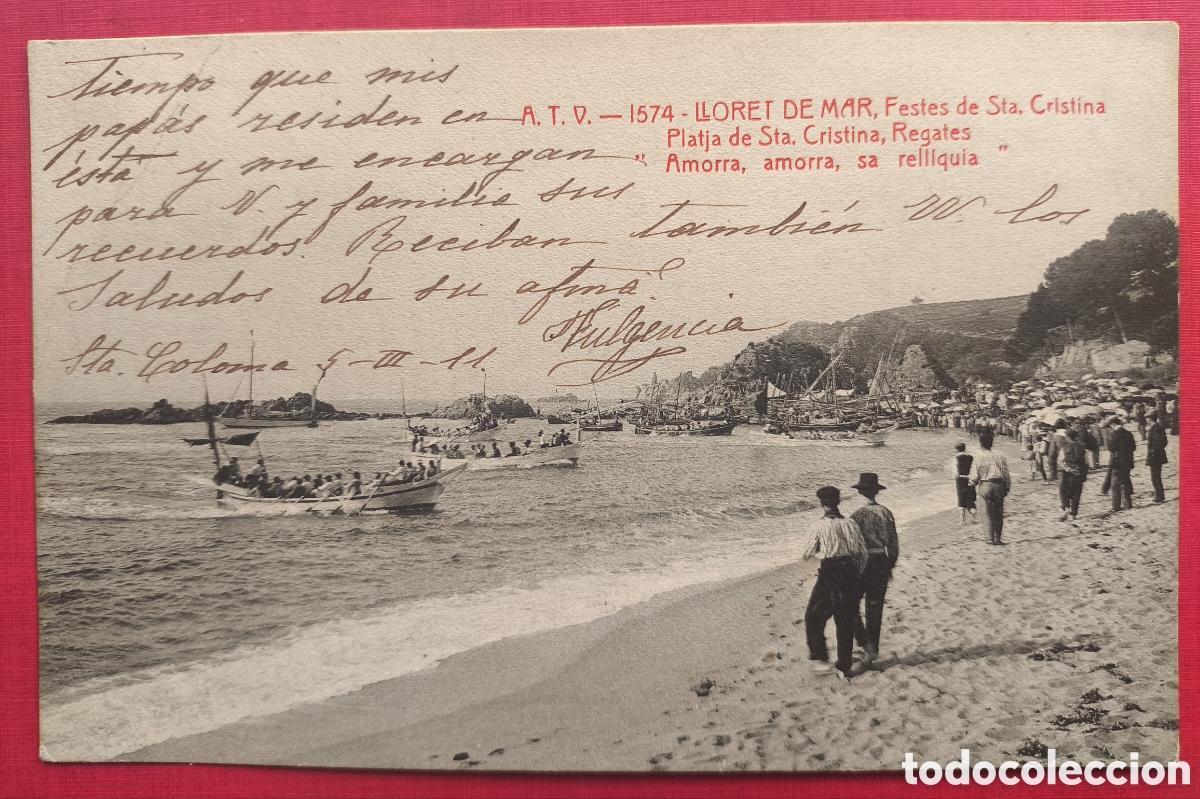 Tiempo que mis
papás residen en
ésta y me encargan
para V. y familia sus
recuerdos. Reciban también VV. los
Saludos de su afma.
Fulgencia
Sta. Coloma 5-III-11
A. T. V. — 1574 - LLORET DE MAR, Festes de Sta. Cristina
Platja de Sta. Cristina, Regates
" Amorra, amorra, sa relliquia "
todocoleccion